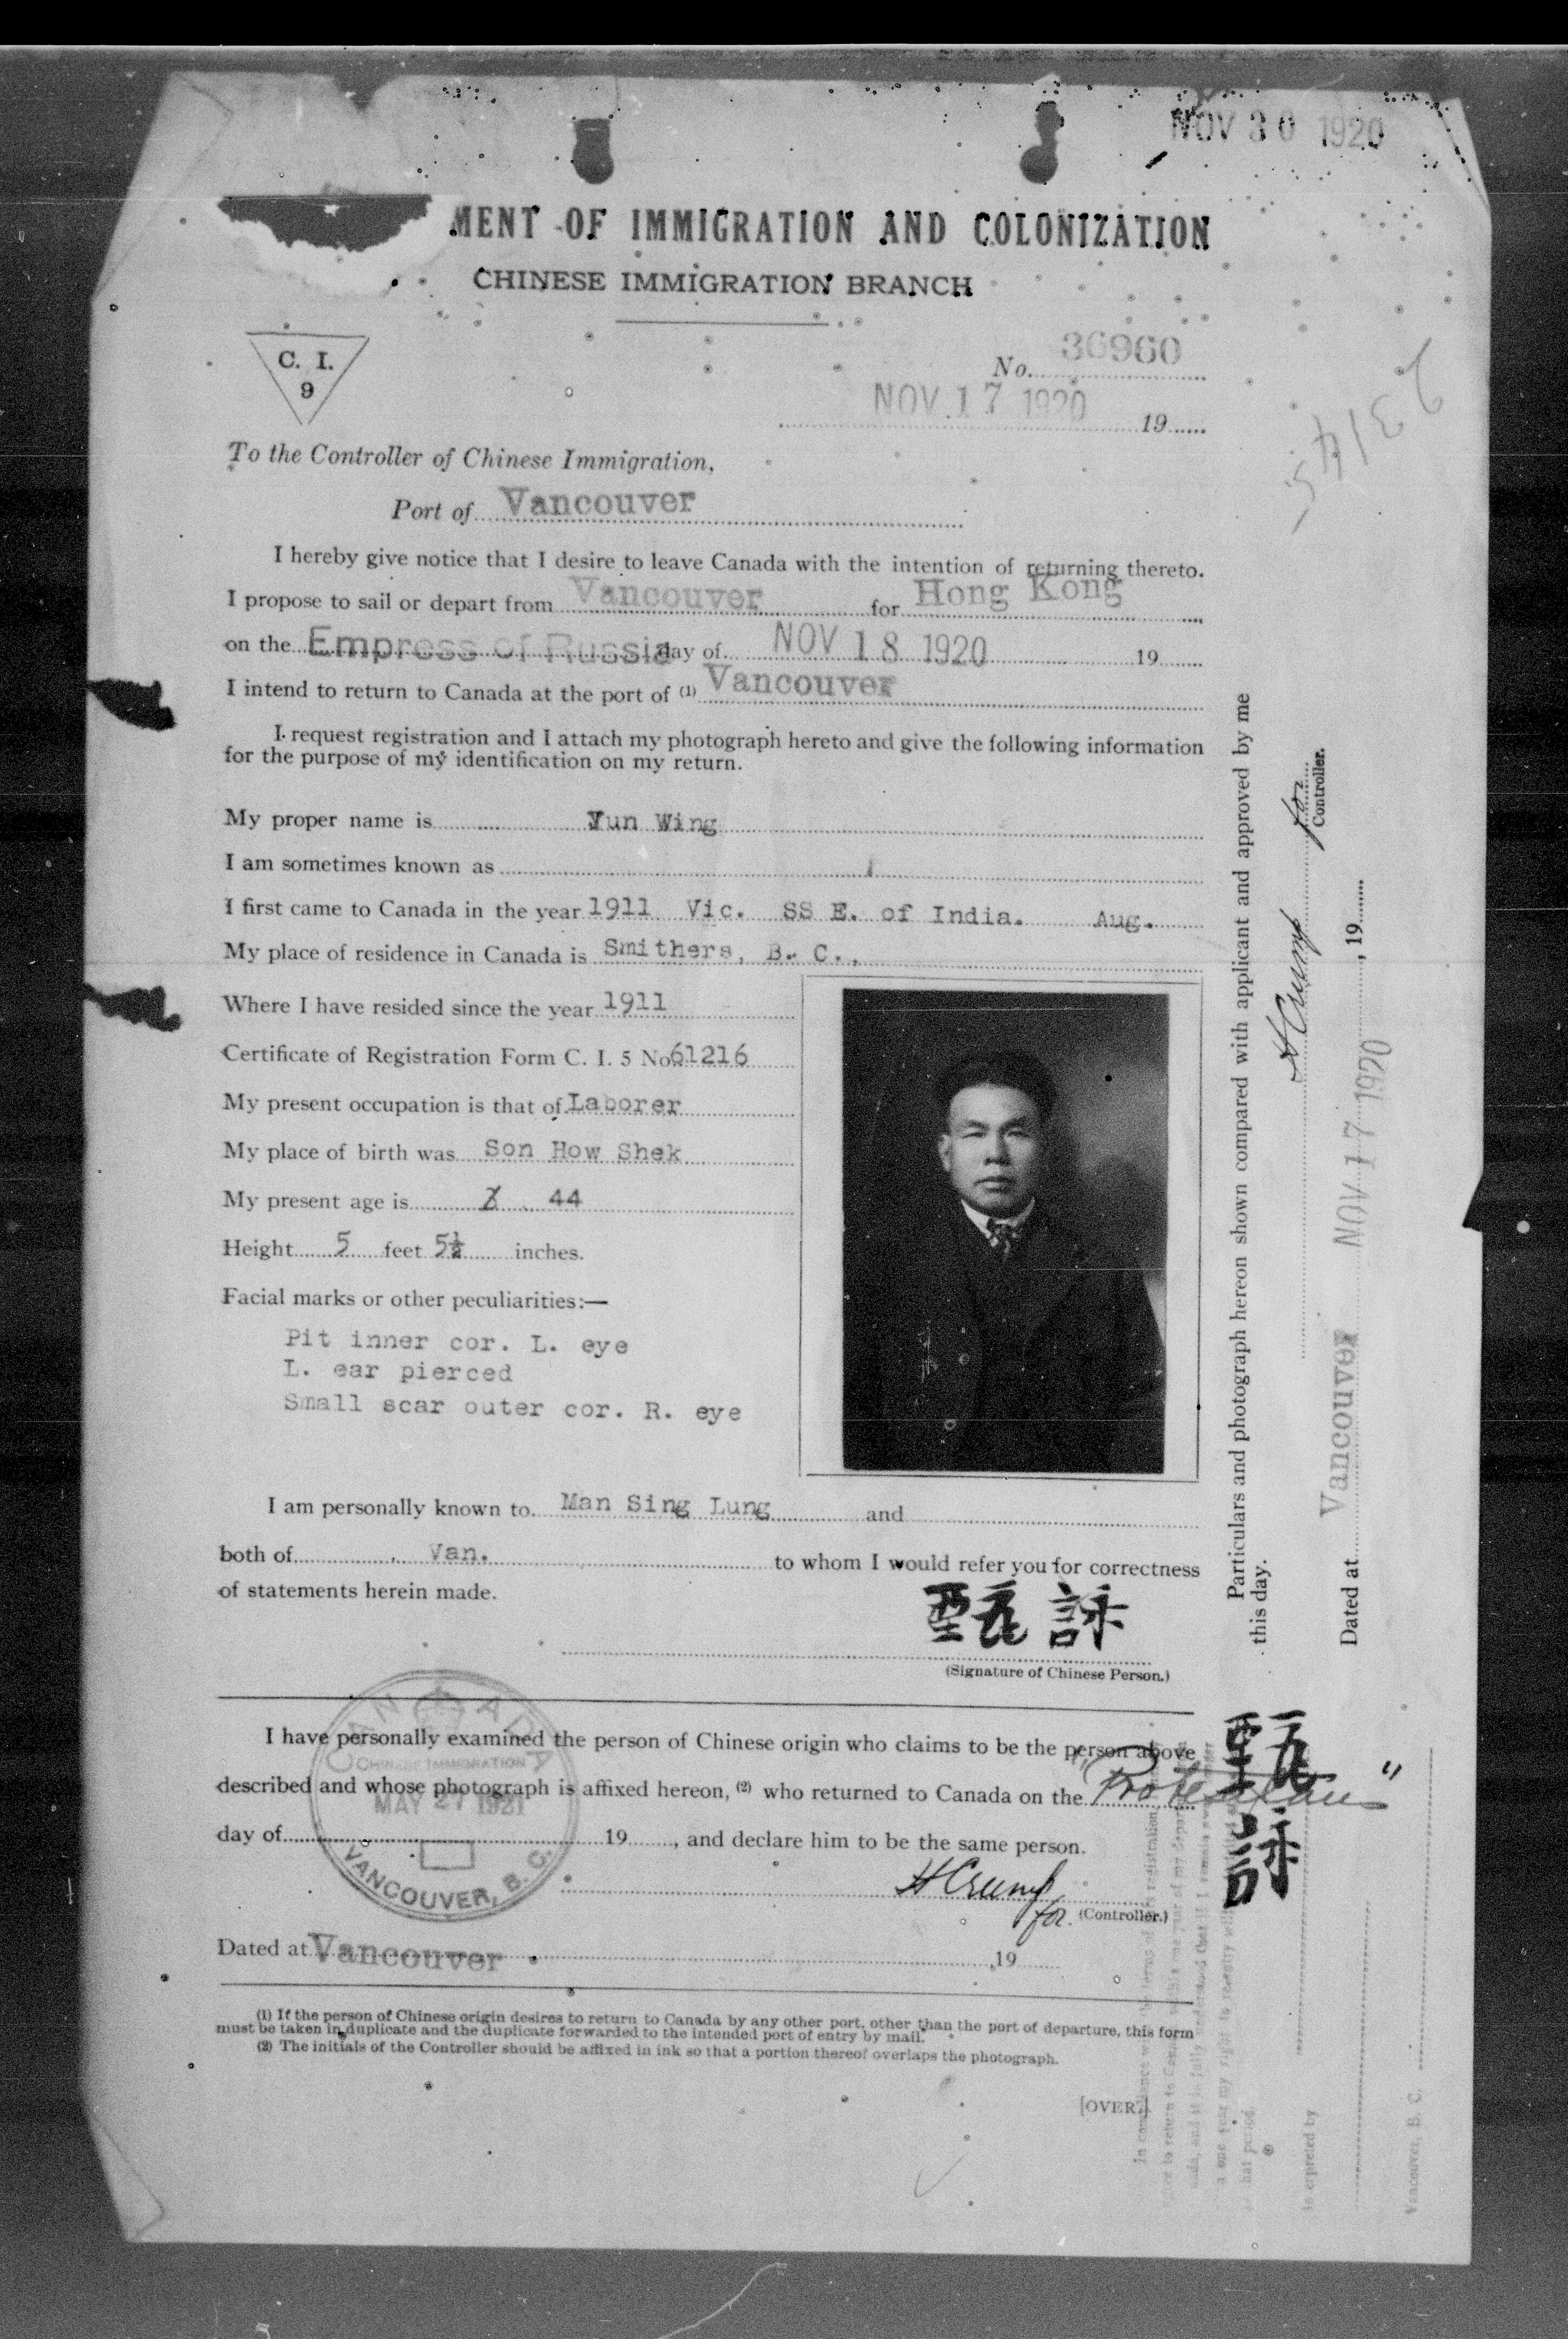 NOV 30 1920
MENT OF IMMIGRATION AND COLONIZATION
CHINESE IMMIGRATION BRANCH
C. I.
9
No. 36960
NOV 17 1920 19
To the Controller of Chinese Immigration,
Port of Vancouver
I hereby give notice that I desire to leave Canada with the intention of returning thereto.
I propose to sail or depart from Vancouver for Hong Kong
on the Empress of Russia day of NOV 18 1920 19
I intend to return to Canada at the port of (1) Vancouver
I request registration and I attach my photograph hereto and give the following information
for the purpose of my identification on my return.
My proper name is Yun Wing
I am sometimes known as
I first came to Canada in the year 1911 Vic. SS E. of India. Aug.
My place of residence in Canada is Smithers, B. C.,
Where I have resided since the year 1911
Certificate of Registration Form C. I. 5 No 61216
My present occupation is that of Laborer
My place of birth was Son How Shek
My present age is 44
Height 5 feet 5½ inches.
Facial marks or other peculiarities:—
Pit inner cor. L. eye
L. ear pierced
Small scar outer cor. R. eye
I am personally known to Man Sing Lung and
both of Van. to whom I would refer you for correctness
of statements herein made.
甄詠
(Signature of Chinese Person.)
I have personally examined the person of Chinese origin who claims to be the person above
described and whose photograph is affixed hereon, (2) who returned to Canada on the "Protesilaus"
day of 19, and declare him to be the same person.
H Crump
for (Controller.)
Dated at Vancouver 19
CANADA
CHINESE IMMIGRATION
MAY 27 1921
VANCOUVER, B. C.
(1) If the person of Chinese origin desires to return to Canada by any other port, other than the port of departure, this form
must be taken in duplicate and the duplicate forwarded to the intended port of entry by mail.
(2) The initials of the Controller should be affixed in ink so that a portion thereof overlaps the photograph.
[OVER]
Particulars and photograph hereon shown compared with applicant and approved by me
this day.
H Crump for
Controller.
Dated at Vancouver NOV 17 1920, 19
甄詠
Vancouver, B. C.